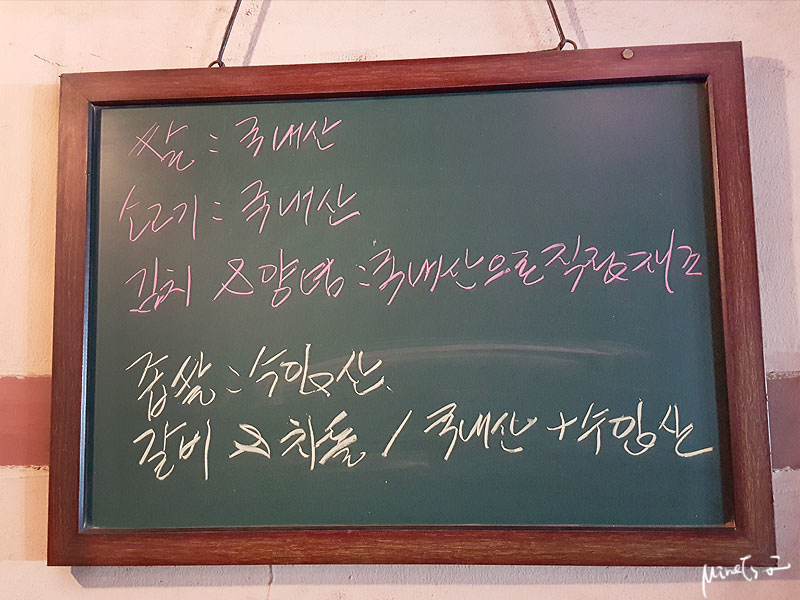 쌀 : 국내산
소고기 : 국내산
김치 & 양념 : 국내산으로 직접제조
찹쌀 : 수입산
갈비 & 차돌 / 국내산 + 수입산